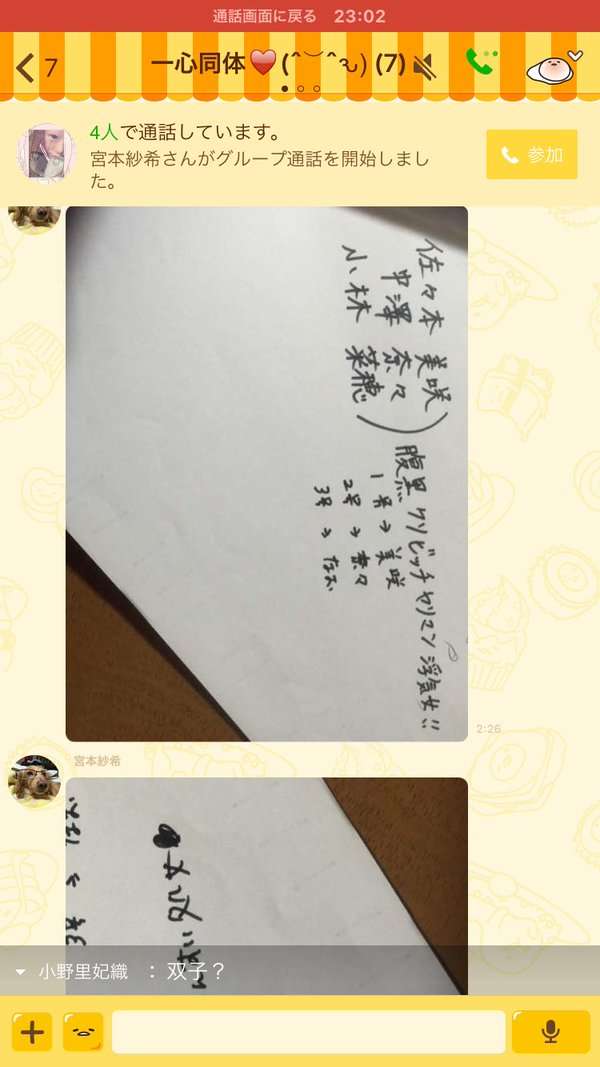 通話画面に戻る 23:02
7 一心同体❤️(^‿^ԅ) (7)
4人で通話しています。
宮本紗希さんがグループ通話を開始しまし
た。
参加
佐々木 美咲
中澤 奈々
小林 菜穂
腹黒クソビッチヤリマン浮気女!!
1号→美咲
2号→奈々
3号→なお
2:26
宮本紗希
小野里妃織 : 双子?